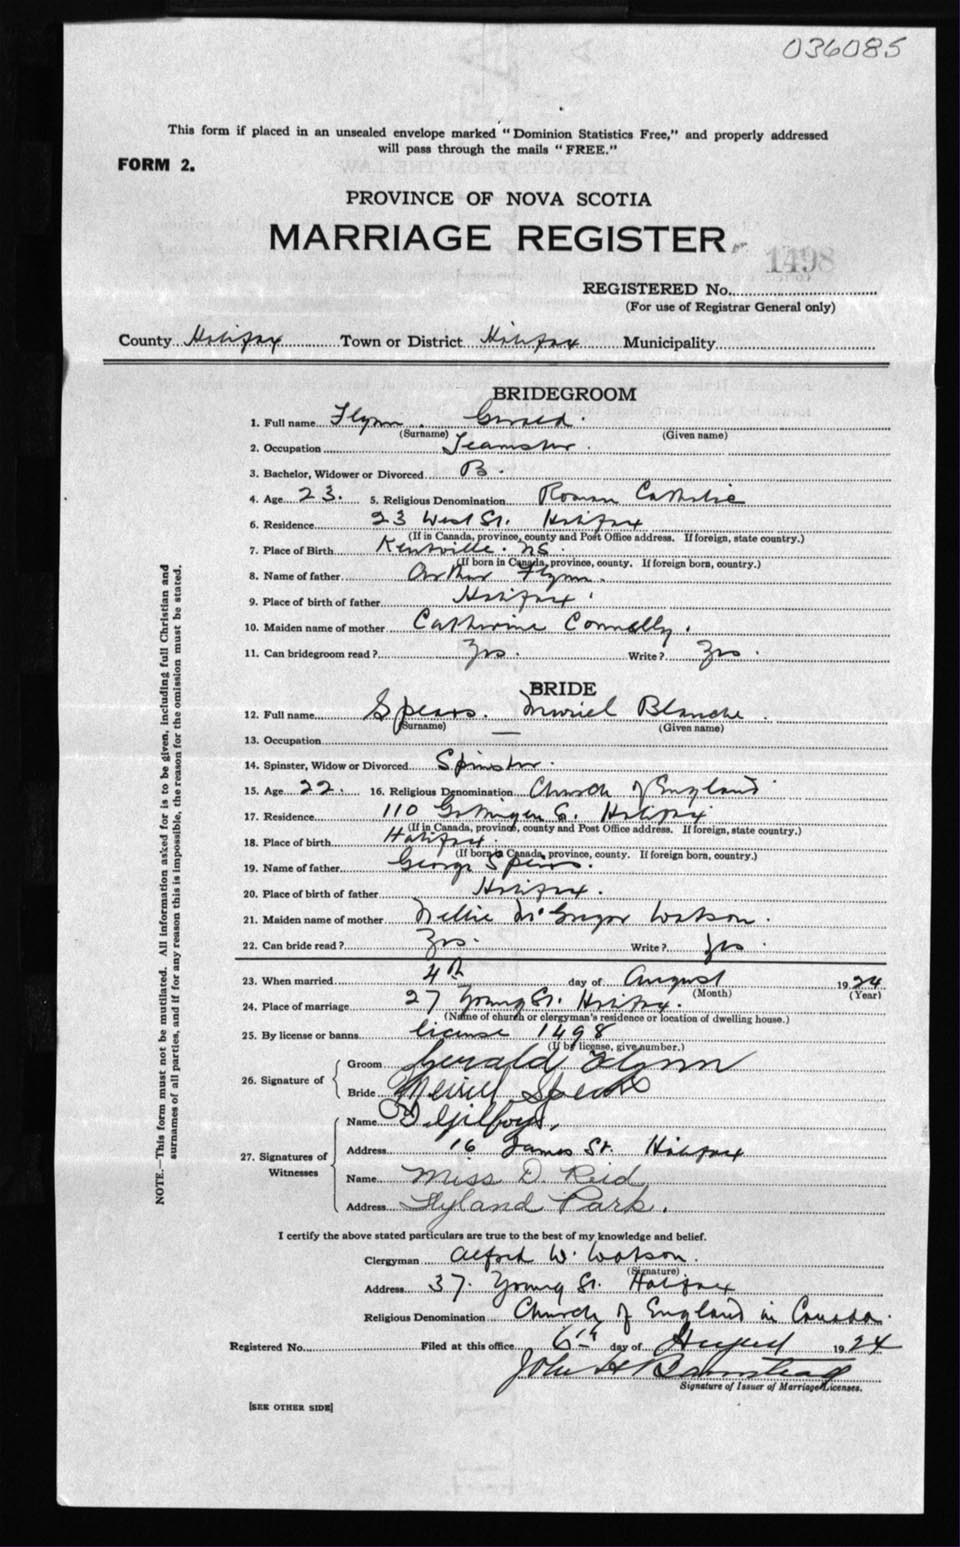 036085
This form if placed in an unsealed envelope marked "Dominion Statistics Free," and properly addressed
will pass through the mails "FREE."
FORM 2.
PROVINCE OF NOVA SCOTIA
MARRIAGE REGISTER
1498
REGISTERED No.
(For use of Registrar General only)
County Halifax Town or District Halifax Municipality
BRIDEGROOM
1. Full name Flynn Gerald
(Surname) (Given name)
2. Occupation Teamster
3. Bachelor, Widower or Divorced B.
4. Age 23. 5. Religious Denomination Roman Catholic
6. Residence 23 West St. Halifax
(If in Canada, province, county and Post Office address. If foreign, state country.)
7. Place of Birth Kentville. NS.
(If born in Canada, province, county. If foreign born, country.)
8. Name of father Arthur Flynn.
9. Place of birth of father Halifax.
10. Maiden name of mother Catherine Connolly.
11. Can bridegroom read? Yes. Write? Yes.
BRIDE
12. Full name Spears. Muriel Blanche.
(Surname) (Given name)
13. Occupation —
14. Spinster, Widow or Divorced Spinster.
15. Age 22. 16. Religious Denomination Church of England
17. Residence 110 Gottingen St. Halifax
(If in Canada, province, county and Post Office address. If foreign, state country.)
18. Place of birth Halifax.
(If born in Canada, province, county. If foreign born, country.)
19. Name of father George Spears.
20. Place of birth of father Halifax.
21. Maiden name of mother Nellie McGregor Watson.
22. Can bride read? Yes. Write? Yes.
23. When married 4th day of August 1924
(Month) (Year)
24. Place of marriage 27 Young St. Halifax.
(Name of church or clergyman's residence or location of dwelling house.)
25. By license or banns license 1498
(If by license, give number.)
26. Signature of
Groom Gerald Flynn
Bride Muriel Spears
27. Signatures of Witnesses
Name D. Gilfoy.
Address 16 James St. Halifax
Name Miss D. Reid
Address Hyland Park.
I certify the above stated particulars are true to the best of my knowledge and belief.
Clergyman Alfred W. Watson.
(Signature)
Address 37. Young St. Halifax
Religious Denomination Church of England in Canada.
Registered No. Filed at this office 6th day of August 1924
John H Barnstead
Signature of Issuer of Marriage Licenses.
[SEE OTHER SIDE]
NOTE.—This form must not be mutilated. All information asked for is to be given, including full Christian and
surnames of all parties, and if for any reason this is impossible, the reason for the omission must be stated.